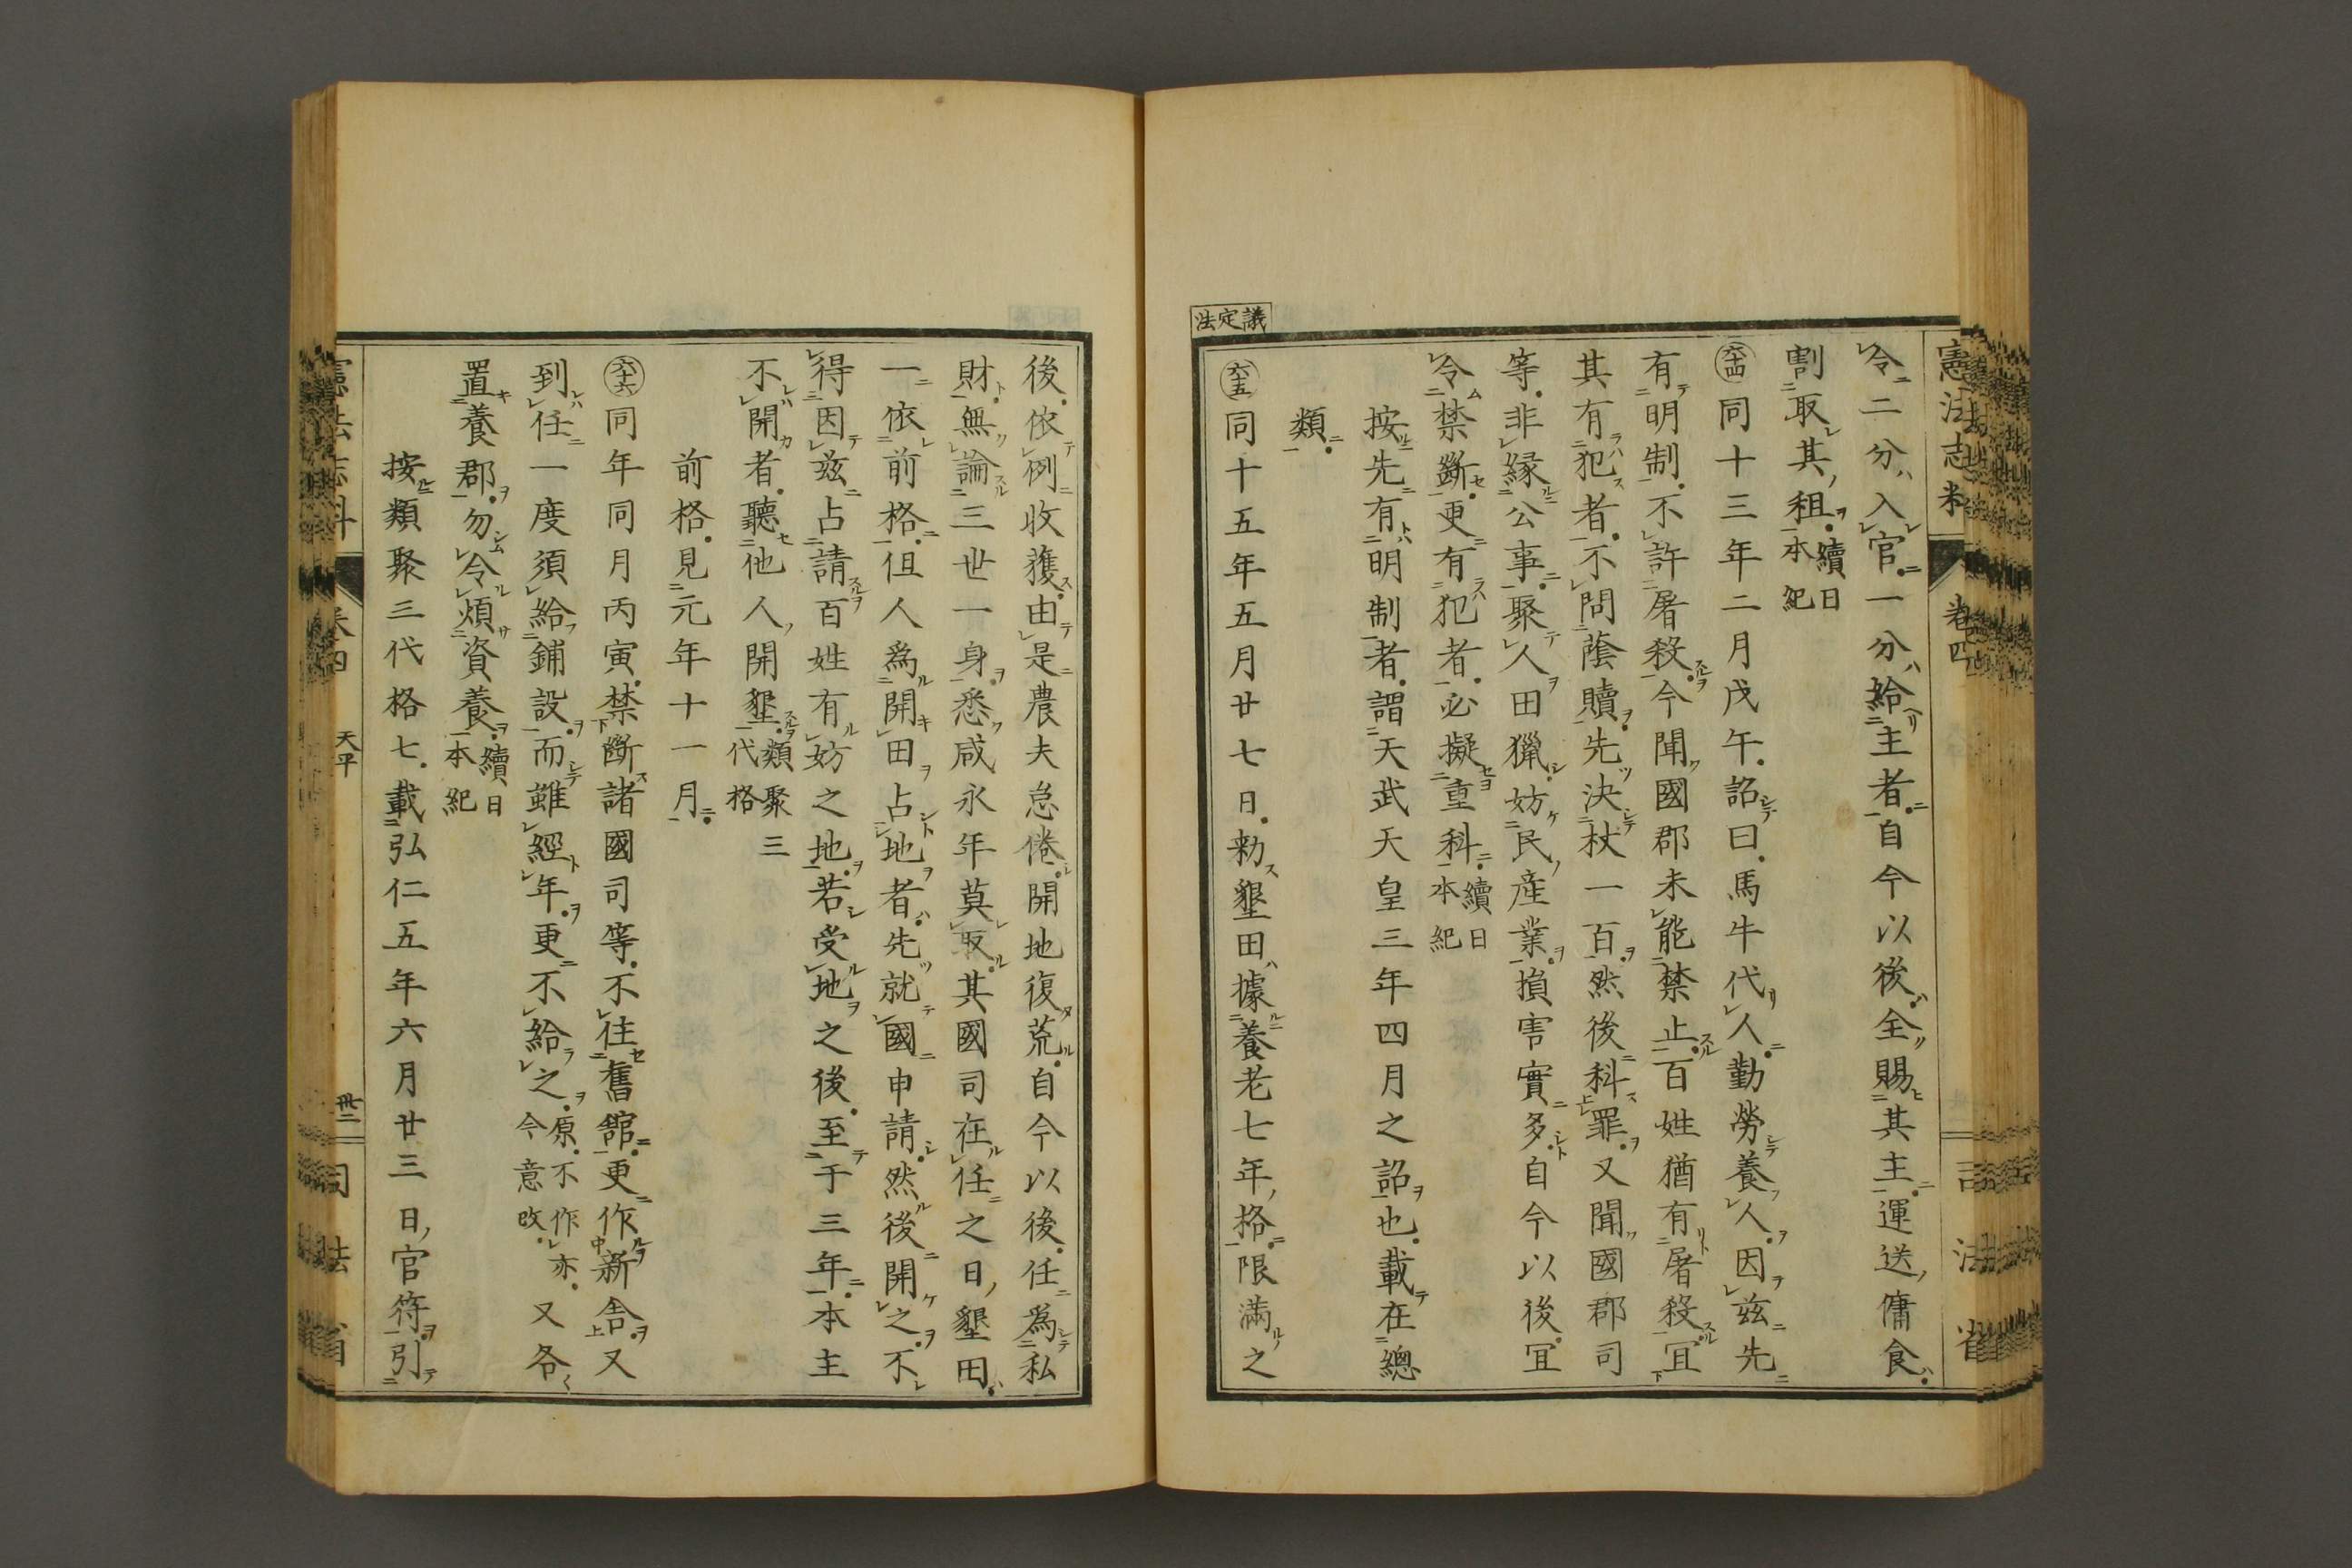 憲法志料 卷四 司法省
令二分ハ入官一分ハ給主者自今以後全賜其主運送傭食
割取其租續日本紀
六十四同十三年二月戊午詔曰馬牛代人勤勞養人因茲先
有明制不許屠殺今聞國郡未能禁止百姓猶有屠殺宜
其有犯者不問蔭贖先決杖一百然後科罪又聞國郡司
等非緣公事聚人田獵妨民產業損害實多自今以後宜
令禁斷更有犯者必擬重科續日本紀
按先有明制者謂天武天皇三年四月之詔也載在總
類
議定法
六十五同十五年五月廿七日勅墾田據養老七年格限滿之
後依例收獲由是農夫怠倦開地復荒自今以後任爲私
財無論三世一身悉咸永年莫取其國司在任之日墾田
一依前格但人爲開田占地者先就國申請然後開之不
得因茲占請百姓有妨之地若受地之後至于三年本主
不開者聽他人開墾類聚三代格
前格見元年十一月
六十六同年同月丙寅禁斷諸國司等不住舊舘更作新舍又
到任一度須給鋪設而雖經年更不給之原不作亦今意改又各
置養郡勿令煩資養續日本紀
按類聚三代格七載弘仁五年六月廿三日官符引
憲法志料 卷四 天平 卅二 司法省